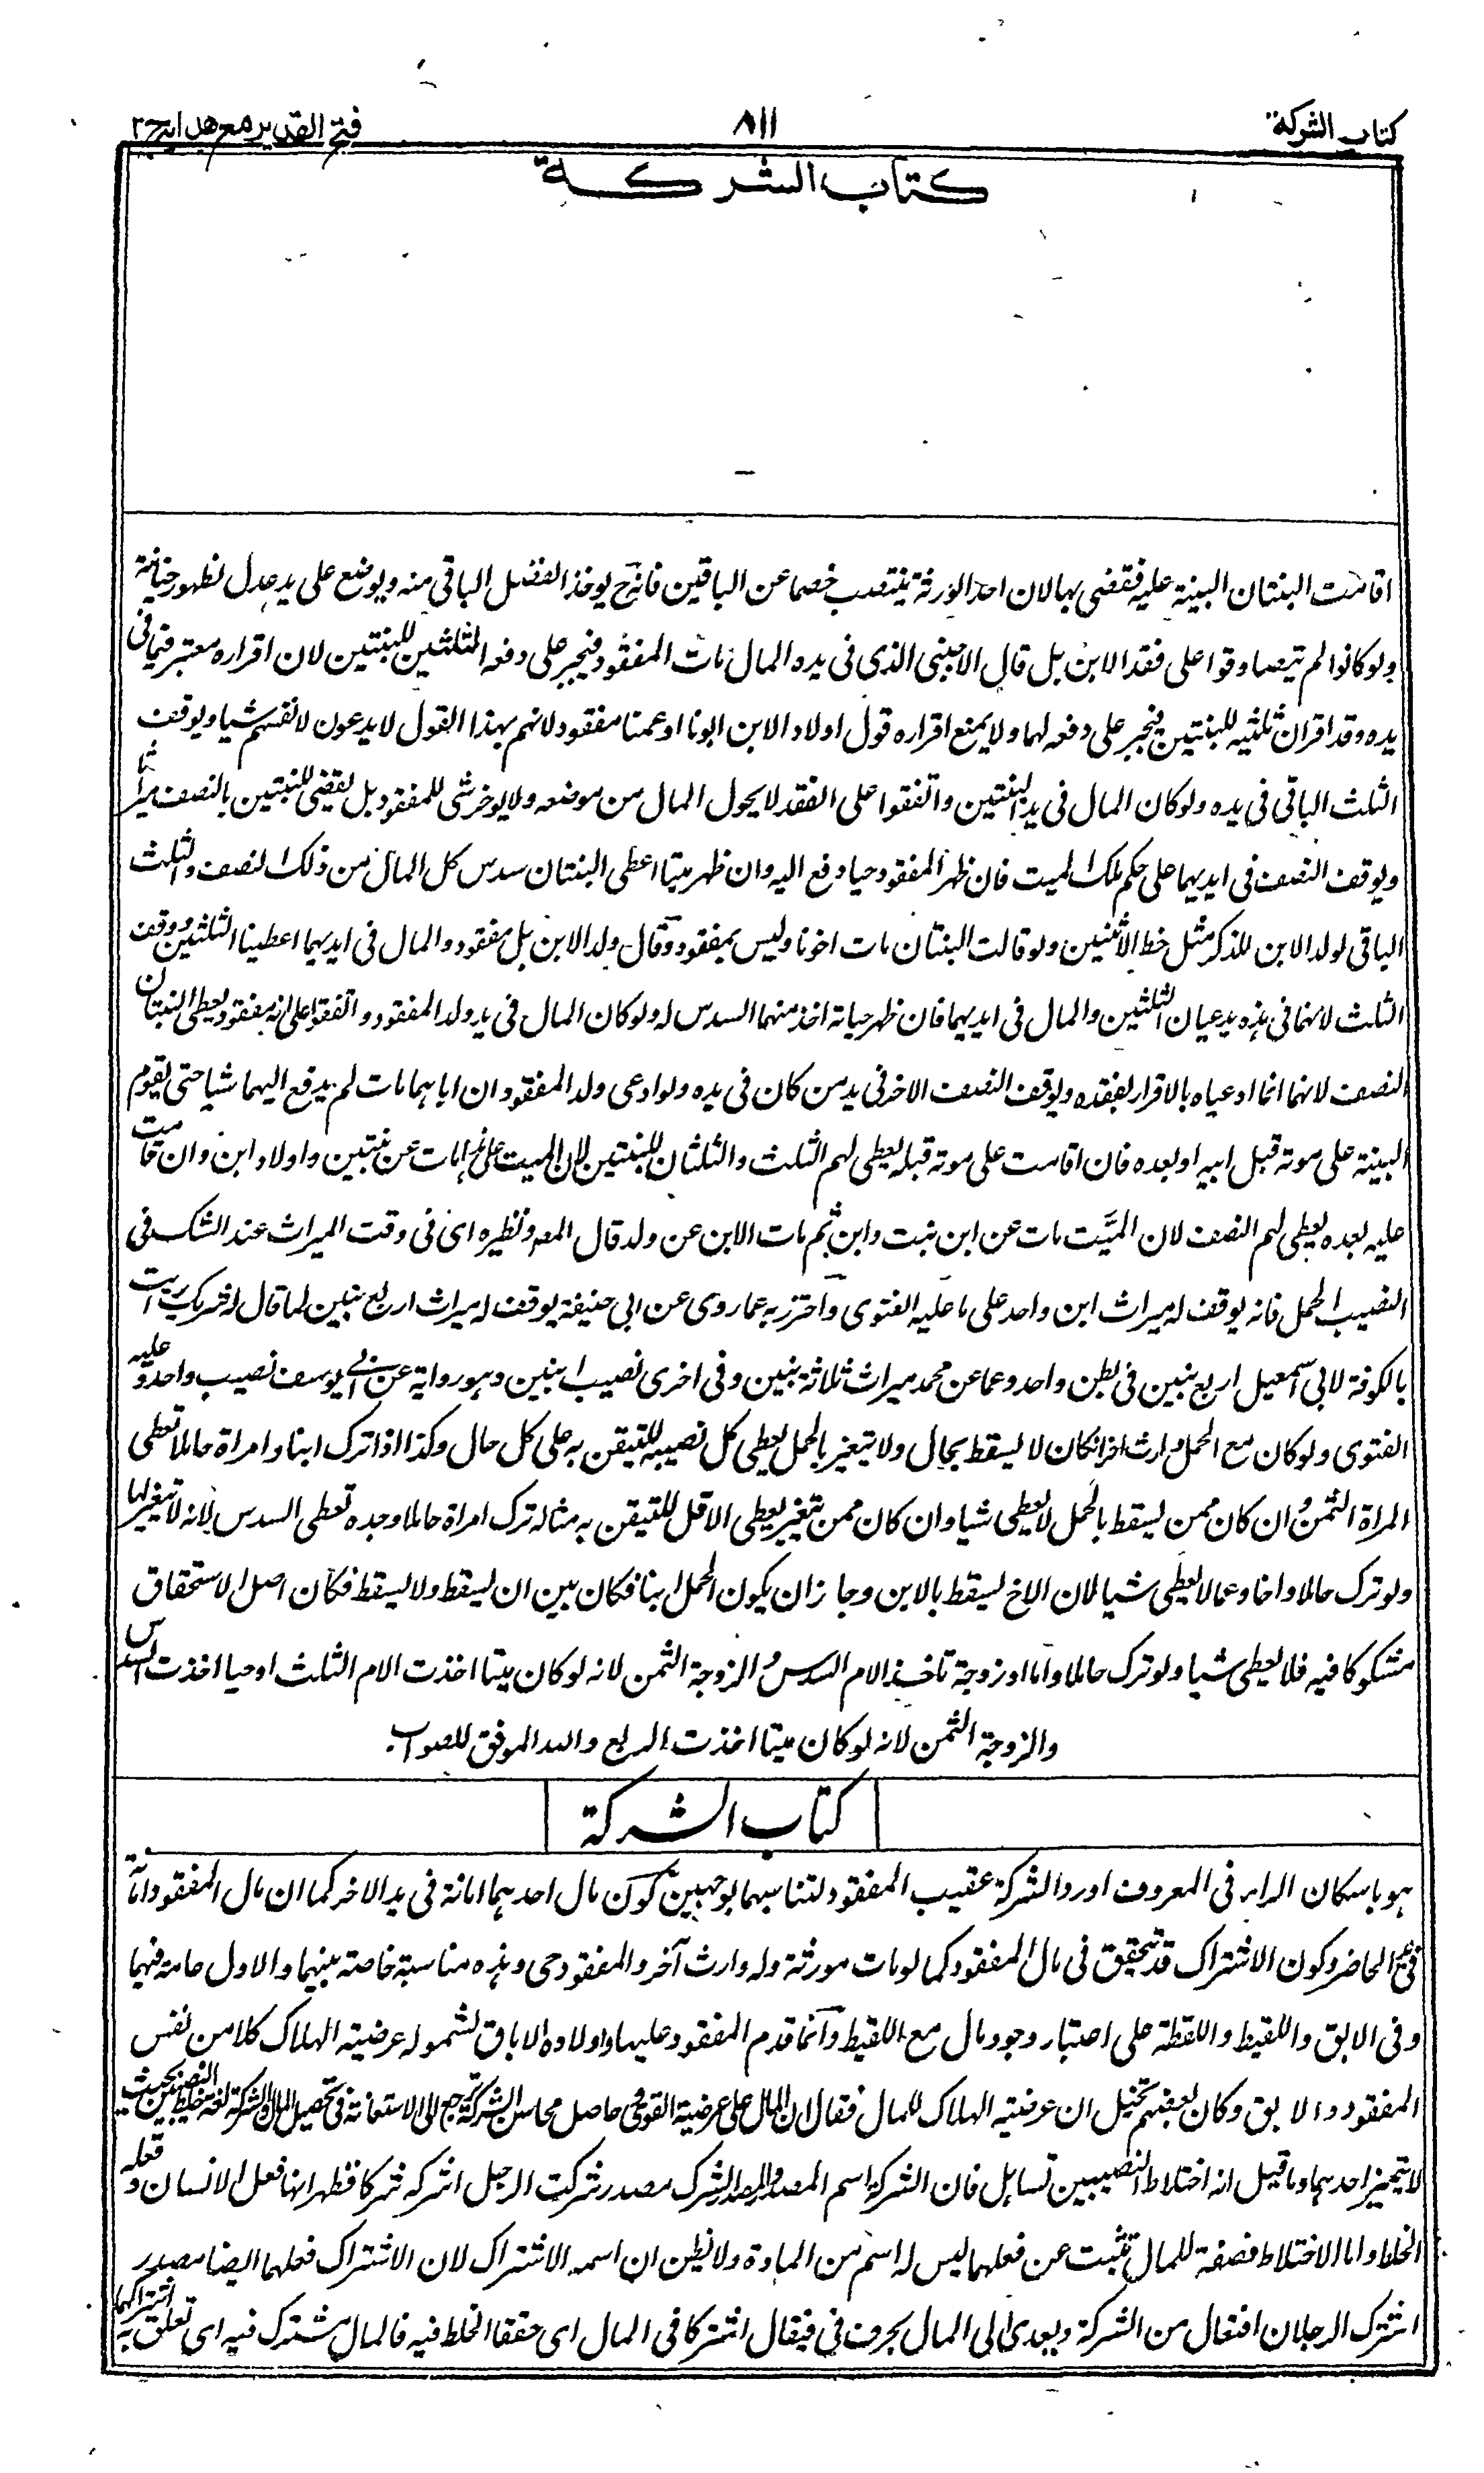 كتاب الشركة
٨١١
فتح القدير مع هدايه ج ٢
كتاب الشركة
اقامت البنتان البينة عليه فقضى بها لان احد الورثة ينتصب خصما عن الباقين فانه ح يوخذ الفضل الباقي منه ويوضع على يد عدل لظهور خيانته
ولو كانوا لم يتصادقوا على فقد الابن بل قال الاجنبي الذي في يده المال مات المفقود فيجبر على دفعه الثلثين للبنتين لان اقراره معتبر فيما في
يده وقد اقر ان ثلثيه للبنتين فيجبر على دفعه لهما ولا يمنع اقراره قول اولاد الابن ابونا او عمنا مفقود لانهم بهذا القول لا يدعون لانفسهم شيا ويوقف
الثلث الباقي في يده ولو كان المال في يد البنتين واتفقوا على الفقد لا يحول المال من موضعه ولا يوخر شي للمفقود بل يقضى للبنتين بالنصف ميراثا
ويوقف النصف في ايديهما على حكم ملك الميت فان ظهر المفقود حيا دفع اليه وان ظهر ميتا اعطى البنتان سدس كل المال من ذلك النصف والثلث
الباقي لولد الابن للذكر مثل حظ الانثيين ولو قالت البنتان مات اخونا وليس بمفقود وقال ولد الابن بل مفقود والمال في ايديهما اعطينا الثلثين ووقف
الثلث لانهما في هذه يدعيان الثلثين والمال في ايديهما فان ظهر حياته اخذ منهما السدس له ولو كان المال في يد ولد المفقود واتفقوا على انه مفقود يعطى البنتان
النصف لانهما انما ادعياه بالاقرار بفقده ويوقف النصف الاخر في يد من كان في يده ولو ادعى ولد المفقود ان اباهما مات لم يدفع اليهما شيا حتى يقوم
البينة على موته قبل ابيه او بعده فان اقامت على موته قبله يعطى لهم الثلث والثلثان للبنتين لان الميت على هذا مات عن بنتين واولاد ابن وان قامت
عليه بعده يعطى لهم النصف لان الميت مات عن ابن بنت وابن ثم مات الابن عن ولد قال المصـ ونظيره اي في وقت الميراث عند الشك في
النصيب الحمل فانه يوقف له ميراث ابن واحد على ما عليه الفتوى واحترز به عما روى عن ابي حنيفة يوقف له ميراث اربع بنين لما قال له شريك رايت
بالكوفة لابي اسمعيل اربع بنين في بطن واحد وعما عن محمد ميراث ثلاثة بنين وفي اخرى نصيب ابنين وهو رواية عن ابي يوسف نصيب واحد وعليه
الفتوى ولو كان مع الحمل وارث اخر ان كان لا يسقط بحال ولا يتغير بالحمل يعطى كل نصيبه للتيقن به على كل حال وكذا اذا ترك ابنا وامراة حاملا تعطى
المراة الثمن وان كان ممن يسقط بالحمل لا يعطى شيا وان كان ممن يتغير يعطى الاقل للتيقن به مثاله ترك امراة حاملا وجده تعطى السدس لانه لا تغير لها
ولو ترك حاملا واخا وعما لا يعطى شيا لان الاخ يسقط بالابن وجاز ان يكون الحمل ابنا فكان بين ان يسقط ولا يسقط فكان اصل الاستحقاق
مشكوكا فيه فلا يعطى شيا ولو ترك حاملا واما او زوجة تاخذ الام السدس والزوجة الثمن لانه لو كان ميتا اخذت الام الثلث او حيا اخذت السدس
والزوجة الثمن لانه لو كان ميتا اخذت الربع والله الموفق للصواب.
كتاب الشركة
هو باسكان الراء في المعروف اورد الشركة عقيب المفقود لتناسبهما بوجهين كون مال احدهما امانة في يد الاخر كما ان مال المفقود امانة
في يد الحاضر وكون الاشتراك قد يتحقق في مال المفقود كما لو مات مورثه وله وارث آخر والمفقود حي وهذه مناسبة خاصة بينهما والاول عامة فيهما
وفي الابق واللقيط واللقطة على اعتبار وجود مال مع اللقيط وانما قدم المفقود عليها واولاده الاباق لشموله عرضية الهلاك كلا من نفس
المفقود والابق وكان بعضهم تخيل ان عرضية الهلاك للمال فقال ان المال على عرضية التوى حاصل محاسن الشركة يرجع الى الاستعانة في تحصيل المال والشركة لغة خلط النصيبين بحيث
لا يتميز احدهما وما قيل انه اختلاط النصيبين تساهل فان الشركة اسم المصدر والمصدر الشرك مصدر شركت الرجل اشركه شركا فظهر انها فعل الانسان وفعله
الخلط واما الاختلاط فصفة للمال تثبت عن فعلهما ليس له اسم من المادة ولا يظن ان اسمه الاشتراك لان الاشتراك فعلهما ايضا مصدر
اشترك الرجلان افتعال من الشركة ويعدى الى المال بحرف في فيقال اشتركا في المال اي حققا الخلط فيه فالمال مشترك فيه اي تعلق به اشتراكهما